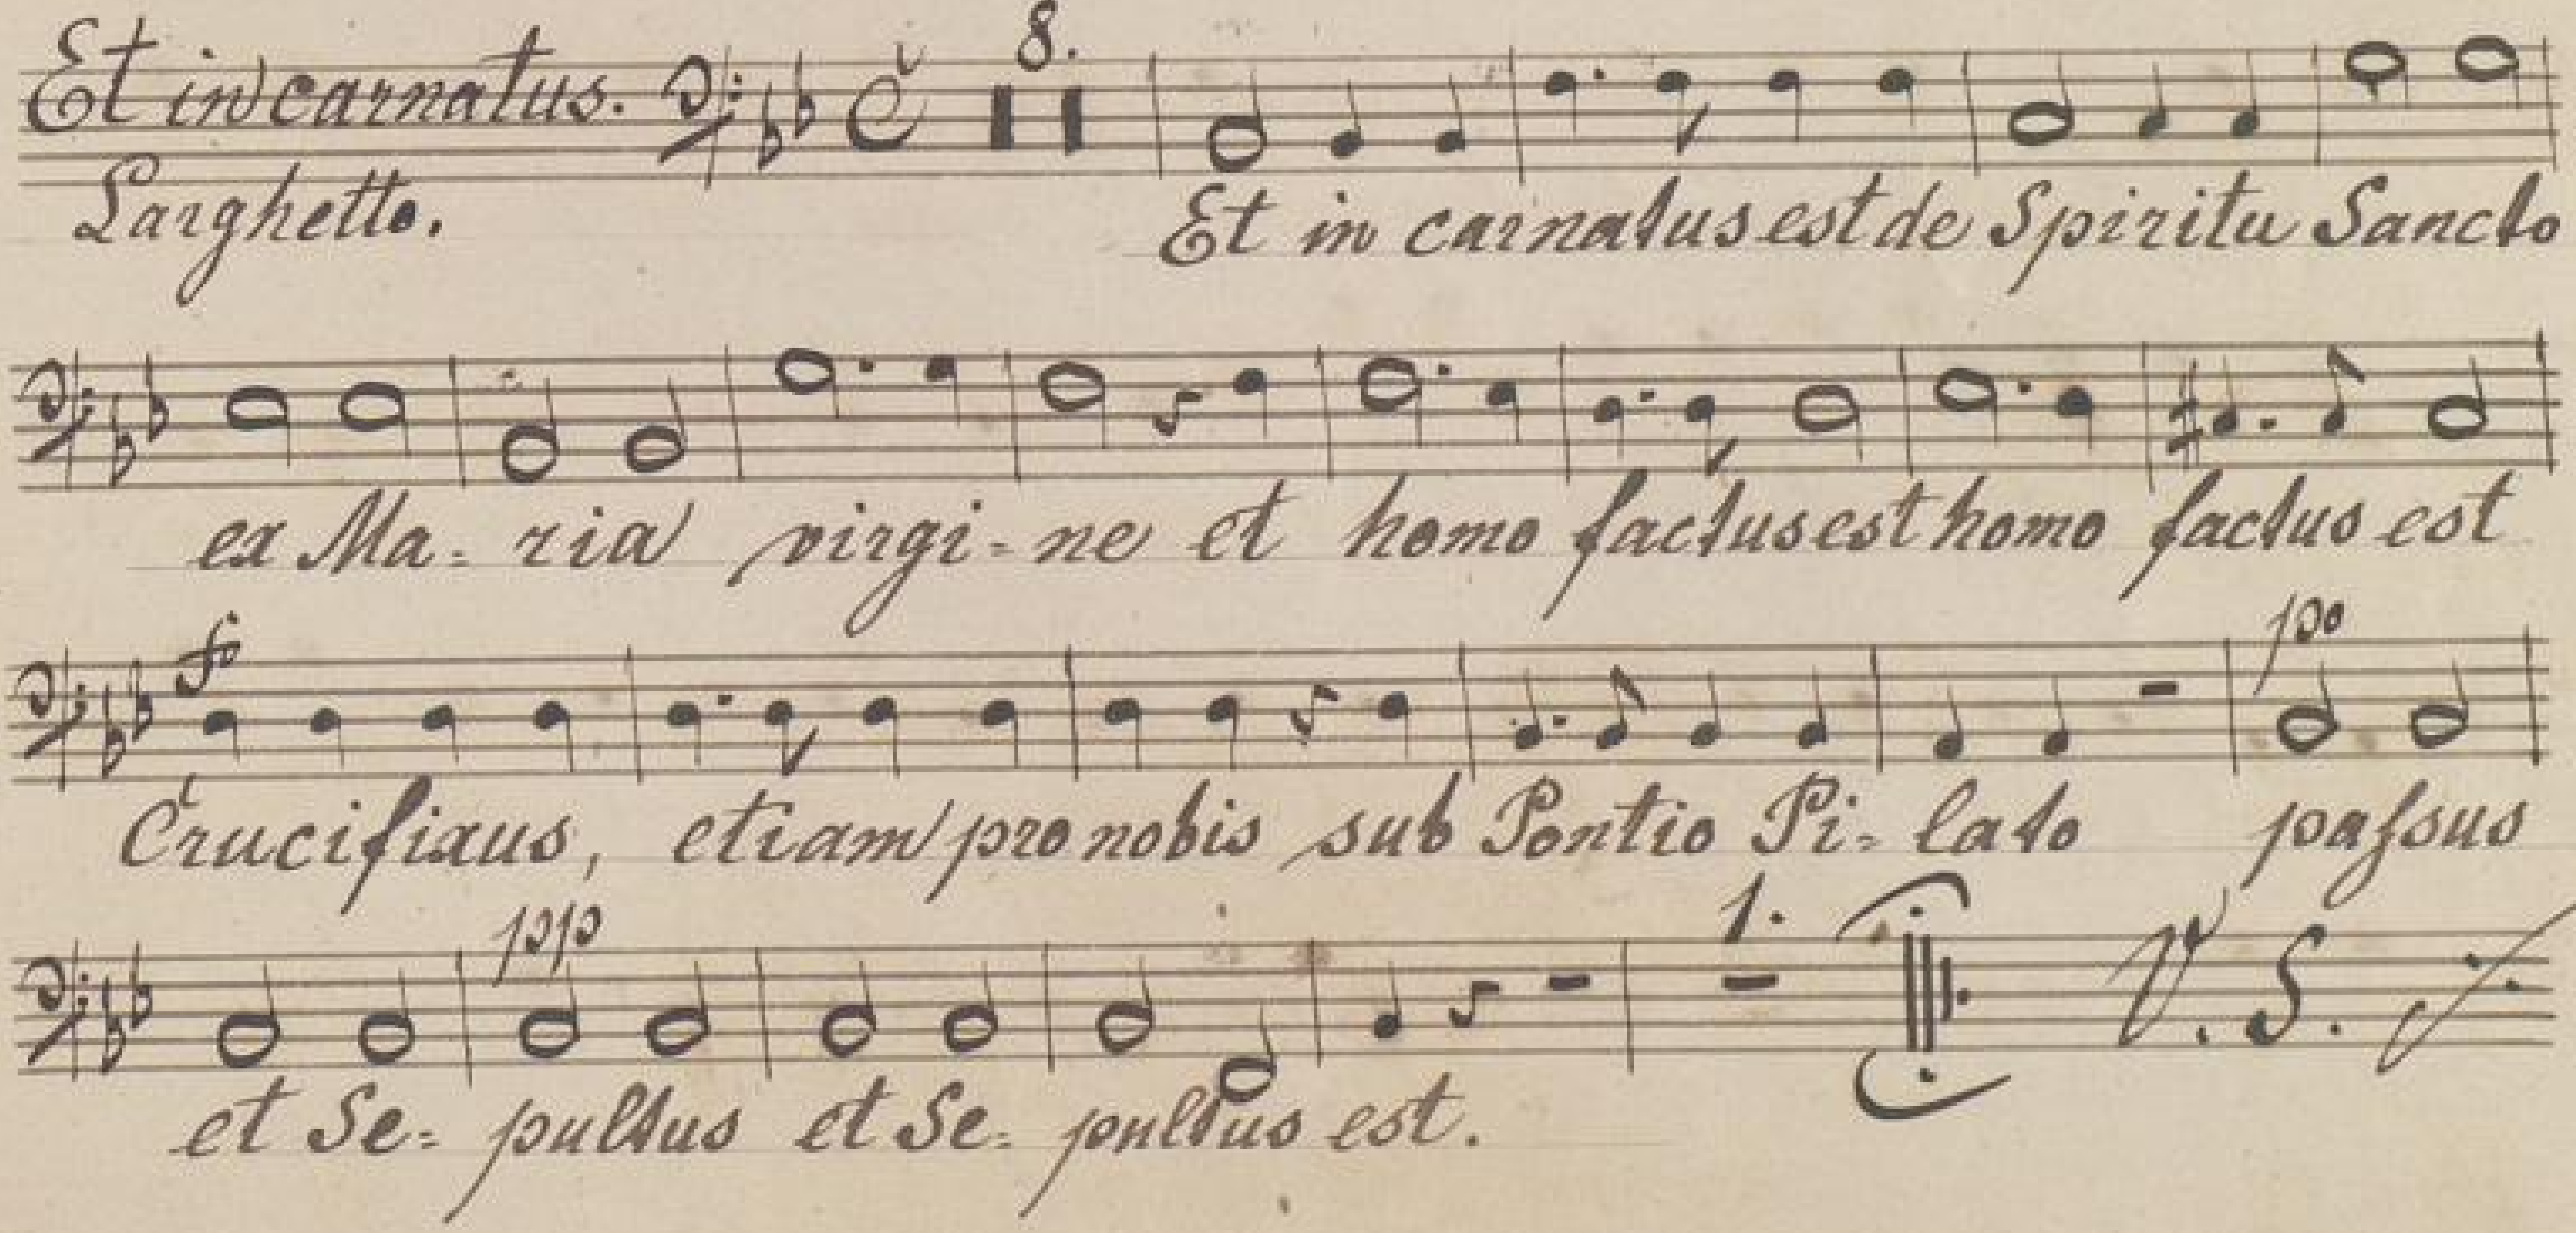 8.
Et incarnatus.
Larghetto.
Et in carnatus est de Spiritu Sancto
ex Ma= ria virgi=ne et homo factus est homo factus est
fo
po
Crucifixus, etiam pro nobis sub Pontio Pi= lato paſsus
pp
1.
V. S.
et Se= pultus et Se= pultus est.